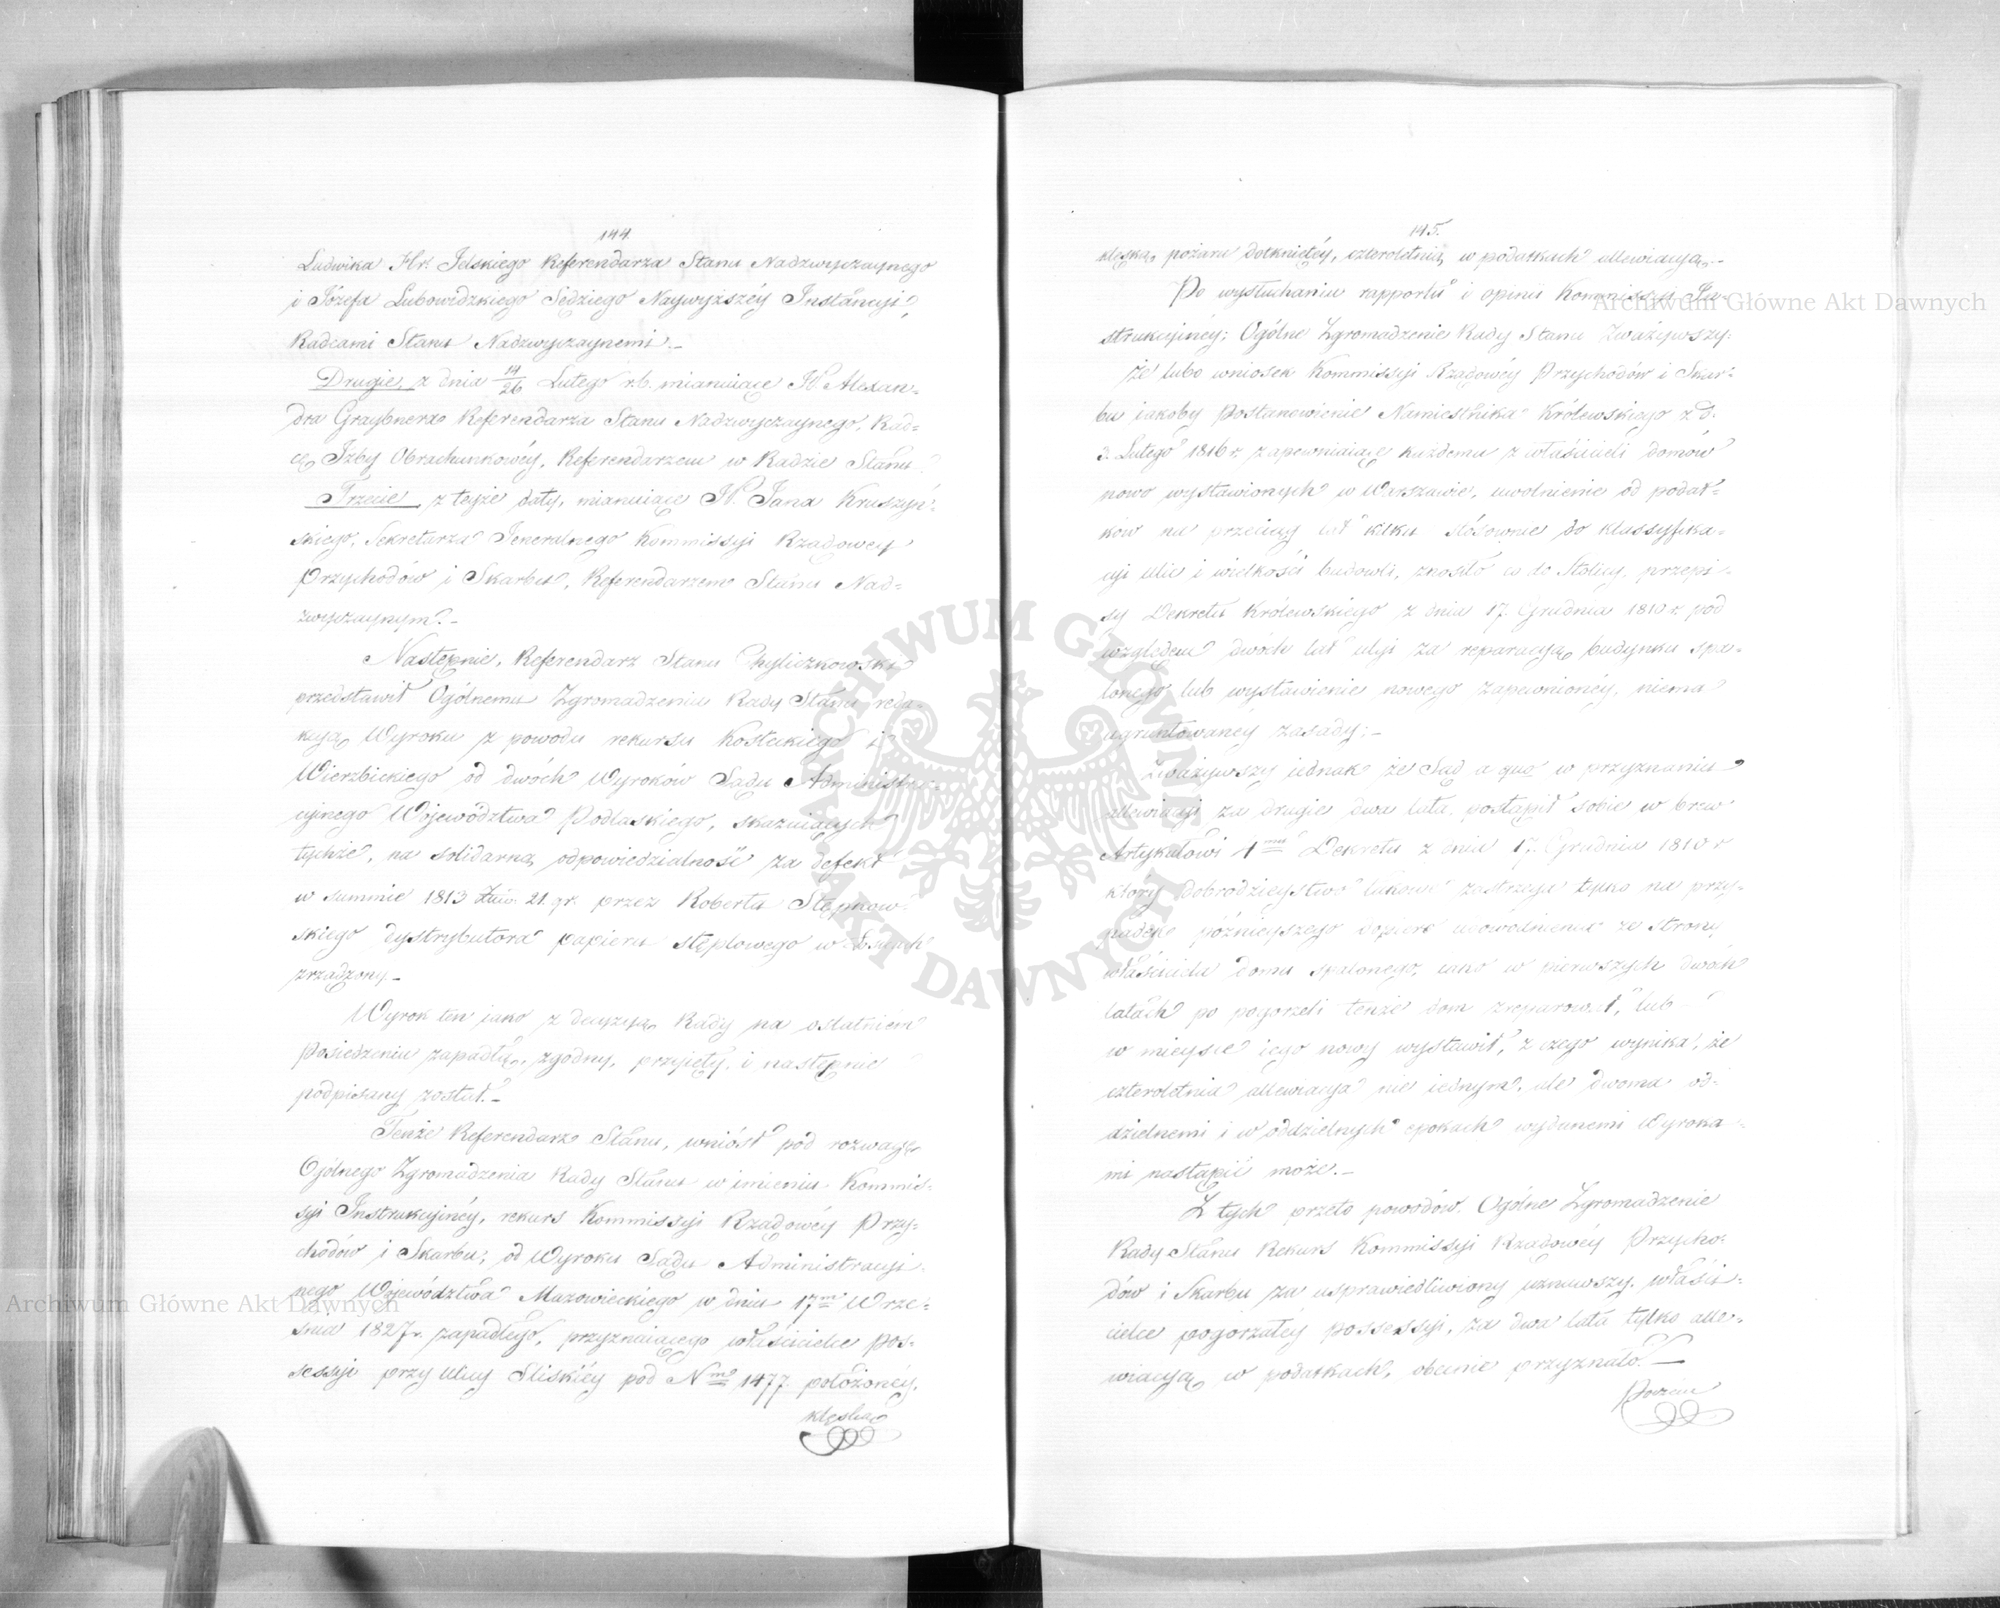 144.
Ludwika Hr: Jelskiego Referendarza Stanu Nadzwyczaynego
i Józefa Lubowidzkiego Sędziego Naywyższéy Instancyi,
Radcami Stanu Nadzwyczaynemi._
Drugie, z dnia 14/26 Lutego r.b. mianuiące W. Alexan-
dra Graybnera Referendarza Stanu Nadzwyczaynego, Rad-
cę Izby Obrachunkowéy, Referendarzem w Radzie Stanu
Trzecie z teyże daty, mianuiące W. Jana Kruszyń-
skiego, Sekretarza Jeneralnego Kommissyi Rządowey
Przychodów i Skarbu, Referendarzem Stanu Nad-
zwyczaynym._
Następnie, Referendarz Stanu Chyliczkowski
przedstawił Ogólnemu Zgromadzeniu Rady Stanu reda-
kcyą Wyroku z powodu rekursu Kosteckiego i
Wierzbickiego od dwóch Wyroków Sądu Administra-
cyjnego Województwa Podlaskiego, skazuiących
tychże, na solidarną odpowiedzialność za defekt
w summie 1813 Złŧw: 21. gr. przez Roberta Stępkow-
skiego dystrybutora papieru stęplowego w Łosicach
zrządzony._
Wyrok ten jako z decyzyą Rady na ostatniém
Posiedzeniu zapadłą, zgodny, przyięty, i następnie
podpisany został._
Tenże Referendarz Stanu, wniósł pod rozwagę
Ogólnego Zgromadzenia Rady Stanu w imieniu Kommis-
syi Instrukcyinéy, rekurs Kommissyi Rządowéy Przy-
chodów i Skarbu; od Wyroku Sądu Administracyi-
nego Województwa Mazowieckiego w dniu 17m Wrze-
śnia 1827 r. zapadłego, przyznaiącego właścicielce pos-
sessyi przy ulicy Sliskiéy pod Nm 1477. położonéy,
klęską
145.
klęską pożaru dotkniętéy, czteroletnią w podatkach allewiacyą._
Po wysłuchaniu rapportu i opinii Kommissyi In-
strukcyinéy; Ogólne Zgromadzenie Rady Stanu Zważywszy:
Że lubo wniosek Kommissyi Rządowéy Przychodów i Skar-
bu iakoby Postanowienie Namiestnika Królewskiego z d.
3. Lutego 1816 r. zapewniaiące każdemu z właścicieli domów
nowo wystawionych w Warszawie, uwolnienie od podat-
ków na przeciąg lat kilku stósownie do klassyfika-
cyi ulic i wielkości budowli, znosiło co do Stolicy, przepi-
sy Dekretu Królewskiego z dnia 17. Grudnia 1810 r. pod
względem dwóch lat ulgi za reparacyą budynku spa-
lonego lub wystawienie nowego zapewnionéy, niema
ugruntowaney zasady;_
Zważywszy iednak że Sąd a quo w przyznaniu
allewiacyi za drugie dwa lata, postąpił sobie w brew
Artykułowi 4mu Dekretu z dnia 17. Grudnia 1810 r
który dobrodzieystwo takowe zastrzega tylko na przy-
padek późnieyszego dopiero udowodnienia ze strony
właściciela domu spalonego, iako w pierwszych dwóch
latach po pogorzeli tenże dom zreparował, lub
w mieysce iego nowy wystawił, z czego wynika, że
czteroletnia allewiacya nie iednym, ale dwoma od-
dzielnemi i w oddzielnych epokach wydanemi Wyroka-
mi nastąpić może._
Z tych przeto powodów. Ogólne Zgromadzenie
Rady Stanu Rekurs Kommissyi Rządowéy Przycho-
dów i Skarbu za usprawiedliwiony uznawszy, właści-
cielce pogorzałéy possessyi, za dwa lata tylko alle-
wiacyą w podatkach, obecnie przyznało._
Poczém
Archiwum Główne Akt Dawnych
Archiwum Główne Akt Dawnych
ARCHIWUM GŁÓWNE AKT DAWNYCH